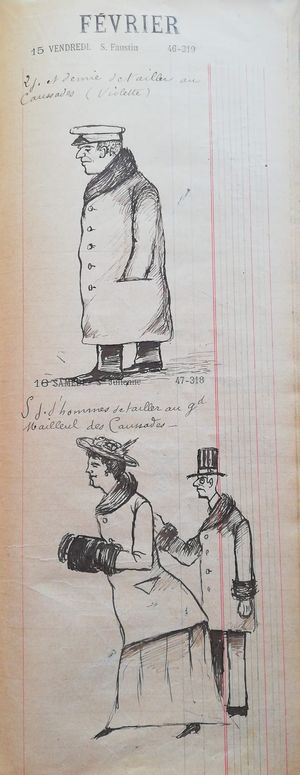 FÉVRIER
15 VENDREDI. S. Faustin 46-319
2 j. et demie de tailler au
Caussades (Violette)
16 SAMEDI. S Julienne 47-318
5 j. d'hommes de tailler au gd
Mailleul des Caussades